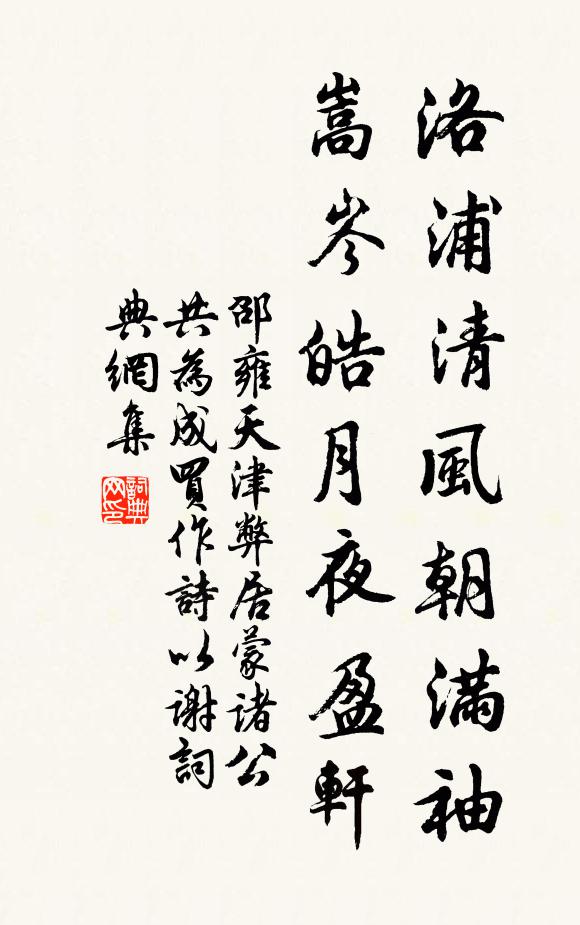 洛浦清風朝滿袖
嵩岑皓月夜盈軒
邵雍天津弊居蒙诸公
共為成買作詩以謝詞
典網集
詞典网印